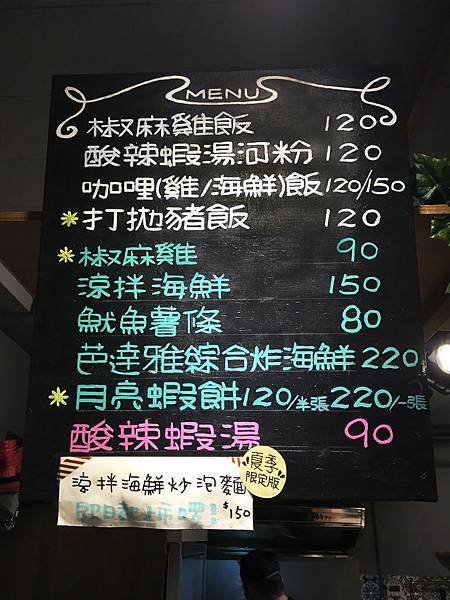 MENU
椒麻雞飯 120
酸辣蝦湯河粉 120
咖哩(雞/海鮮)飯 120/150
*打拋豬飯 120
*椒麻雞 90
涼拌海鮮 150
魷魚薯條 80
芭達雅綜合炸海鮮 220
*月亮蝦餅 120/半張 220/一張
酸辣蝦湯 90
夏季
限定版
涼拌海鮮炒泡麵
$150